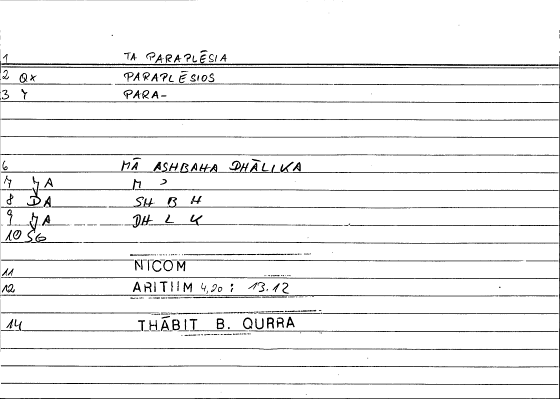 1 TA PARAPLĒSIA
2 QX PARAPLĒSIOS
3 Y PARA-
6 MĀ ASHBAHA DHĀLIKA
7 YA M ɔ
8 DA SH B H
9 YA DH L K
10 SG
11 NICOM
12 ARITIIM 4,20 : 13.12
14 THĀBIT B. QURRA